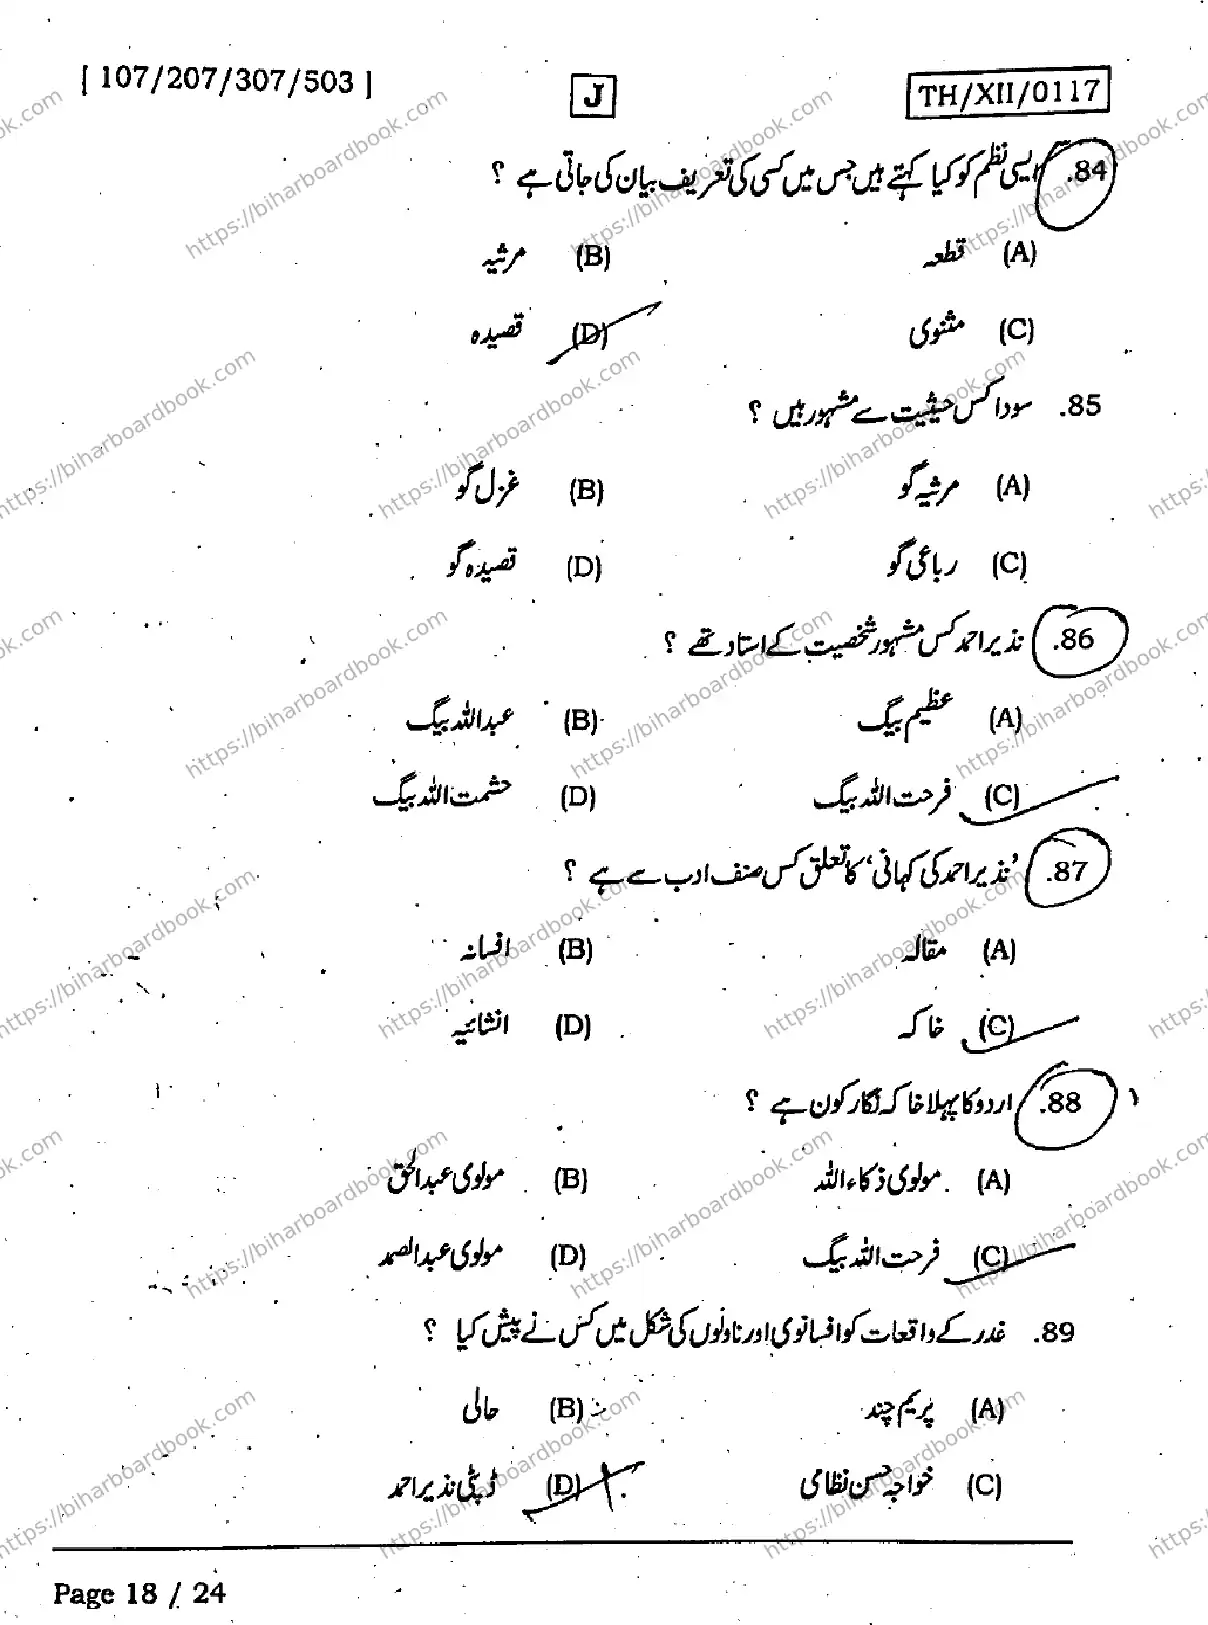 [ 107/207/307/503 ]
J
TH/XII/0117
84. ایسی نظم کو کیا کہتے ہیں جس میں کسی کی تعریف بیان کی جاتی ہے ؟
(A) قطعہ (B) مرثیہ
(C) مثنوی (D) قصیدہ
85. سودا کس حیثیت سے مشہور ہیں ؟
(A) مرثیہ گو (B) غزل گو
(C) رباعی گو (D) قصیدہ گو
86. نذیر احمد کس مشہور شخصیت کے استاد تھے ؟
(A) عظیم بیگ (B) عبداللہ بیگ
(C) فرحت اللہ بیگ (D) حشمت اللہ بیگ
87. 'نذیر احمد کی کہانی' کا تعلق کس صنف ادب سے ہے ؟
(A) مقالہ (B) افسانہ
(C) خاکہ (D) انشائیہ
88. اردو کا پہلا خاکہ نگار کون ہے ؟
(A) مولوی ذکاء اللہ (B) مولوی عبدالحق
(C) فرحت اللہ بیگ (D) مولوی عبدالصمد
89. غدر کے واقعات کو افسانوی اور ناولوں کی شکل میں کس نے پیش کیا ؟
(A) پریم چند (B) حالی
(C) خواجہ حسن نظامی (D) ڈپٹی نذیر احمد
Page 18 / 24
https://biharboardbook.com